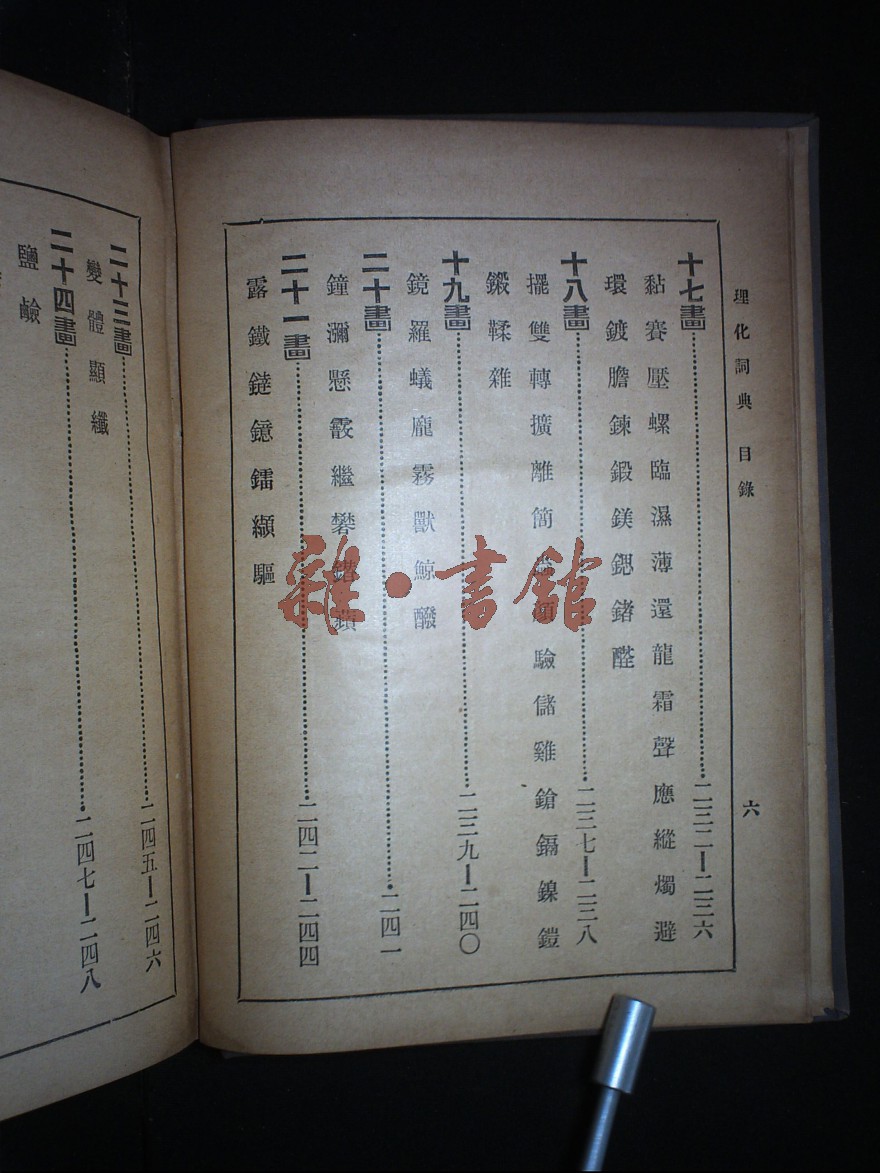 理化詞典 目錄 六
十七畫 二三二—二三六
黏賽壓螺臨濕薄還龍霜聲應縱燭避
環鍍膽鍊鍛鎂鍶鍺醛
十八畫 二三七—二三八
擺雙轉擴離簡 顏驗儲雞鎗鎘鎳鎧
鞣雜
十九畫 二三九—二四〇
鏡羅蟻龐霧獸鯨醱
二十畫 二四一
鐘瀰懸霰繼礬
二十一畫 二四二—二四四
露鐵鐽鐿鐳纈驅
二十三畫 二四五—二四六
變體顯纖
二十四畫 二四七—二四八
鹽鹼
雜·書館